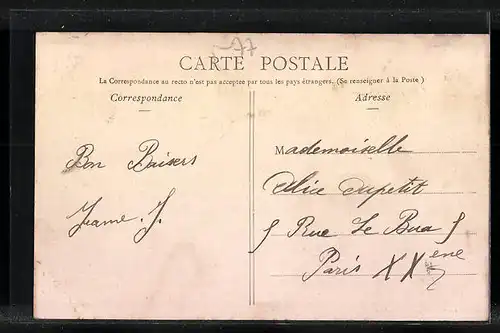 77
CARTE POSTALE
La Correspondance au recto n'est pas acceptée par tous les pays étrangers. (Se renseigner à la Poste)
Correspondance
Adresse
Bon Baisers
Jeanne. J.
Mademoiselle
Alice Dupetit
5 Rue Le Bua 5
Paris XXème